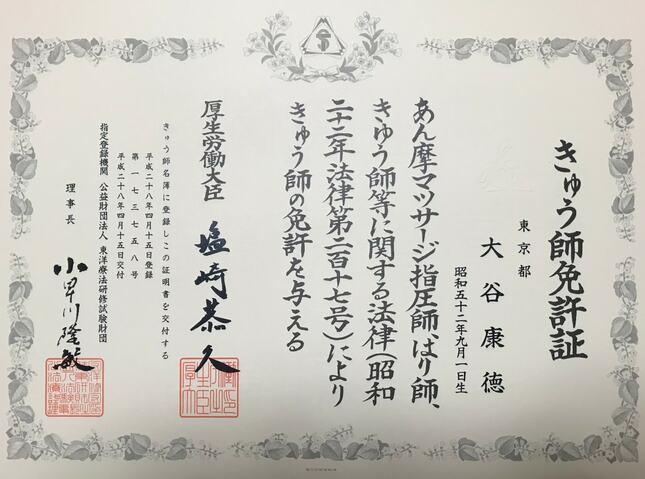 きゅう師免許証
東京都
大谷康徳
昭和五十二年九月一日生
あん摩マツサージ指圧師、はり師、
きゆう師等に関する法律(昭和
二十二年法律第二百十七号)により
きゅう師の免許を与える
厚生労働大臣 塩崎恭久
きゅう師名簿に登録しこの証明書を交付する
平成二十八年四月十五日登録
第一七三七五八号
平成二十八年四月十五日交付
指定登録機関 公益財団法人 東洋療法研修試験財団
理事長 小早川隆敏